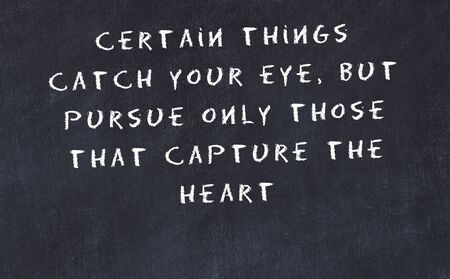 CERTAIN THINGS
CATCH YOUR EYE, BUT
PURSUE ONLY THOSE
THAT CAPTURE THE
HEART